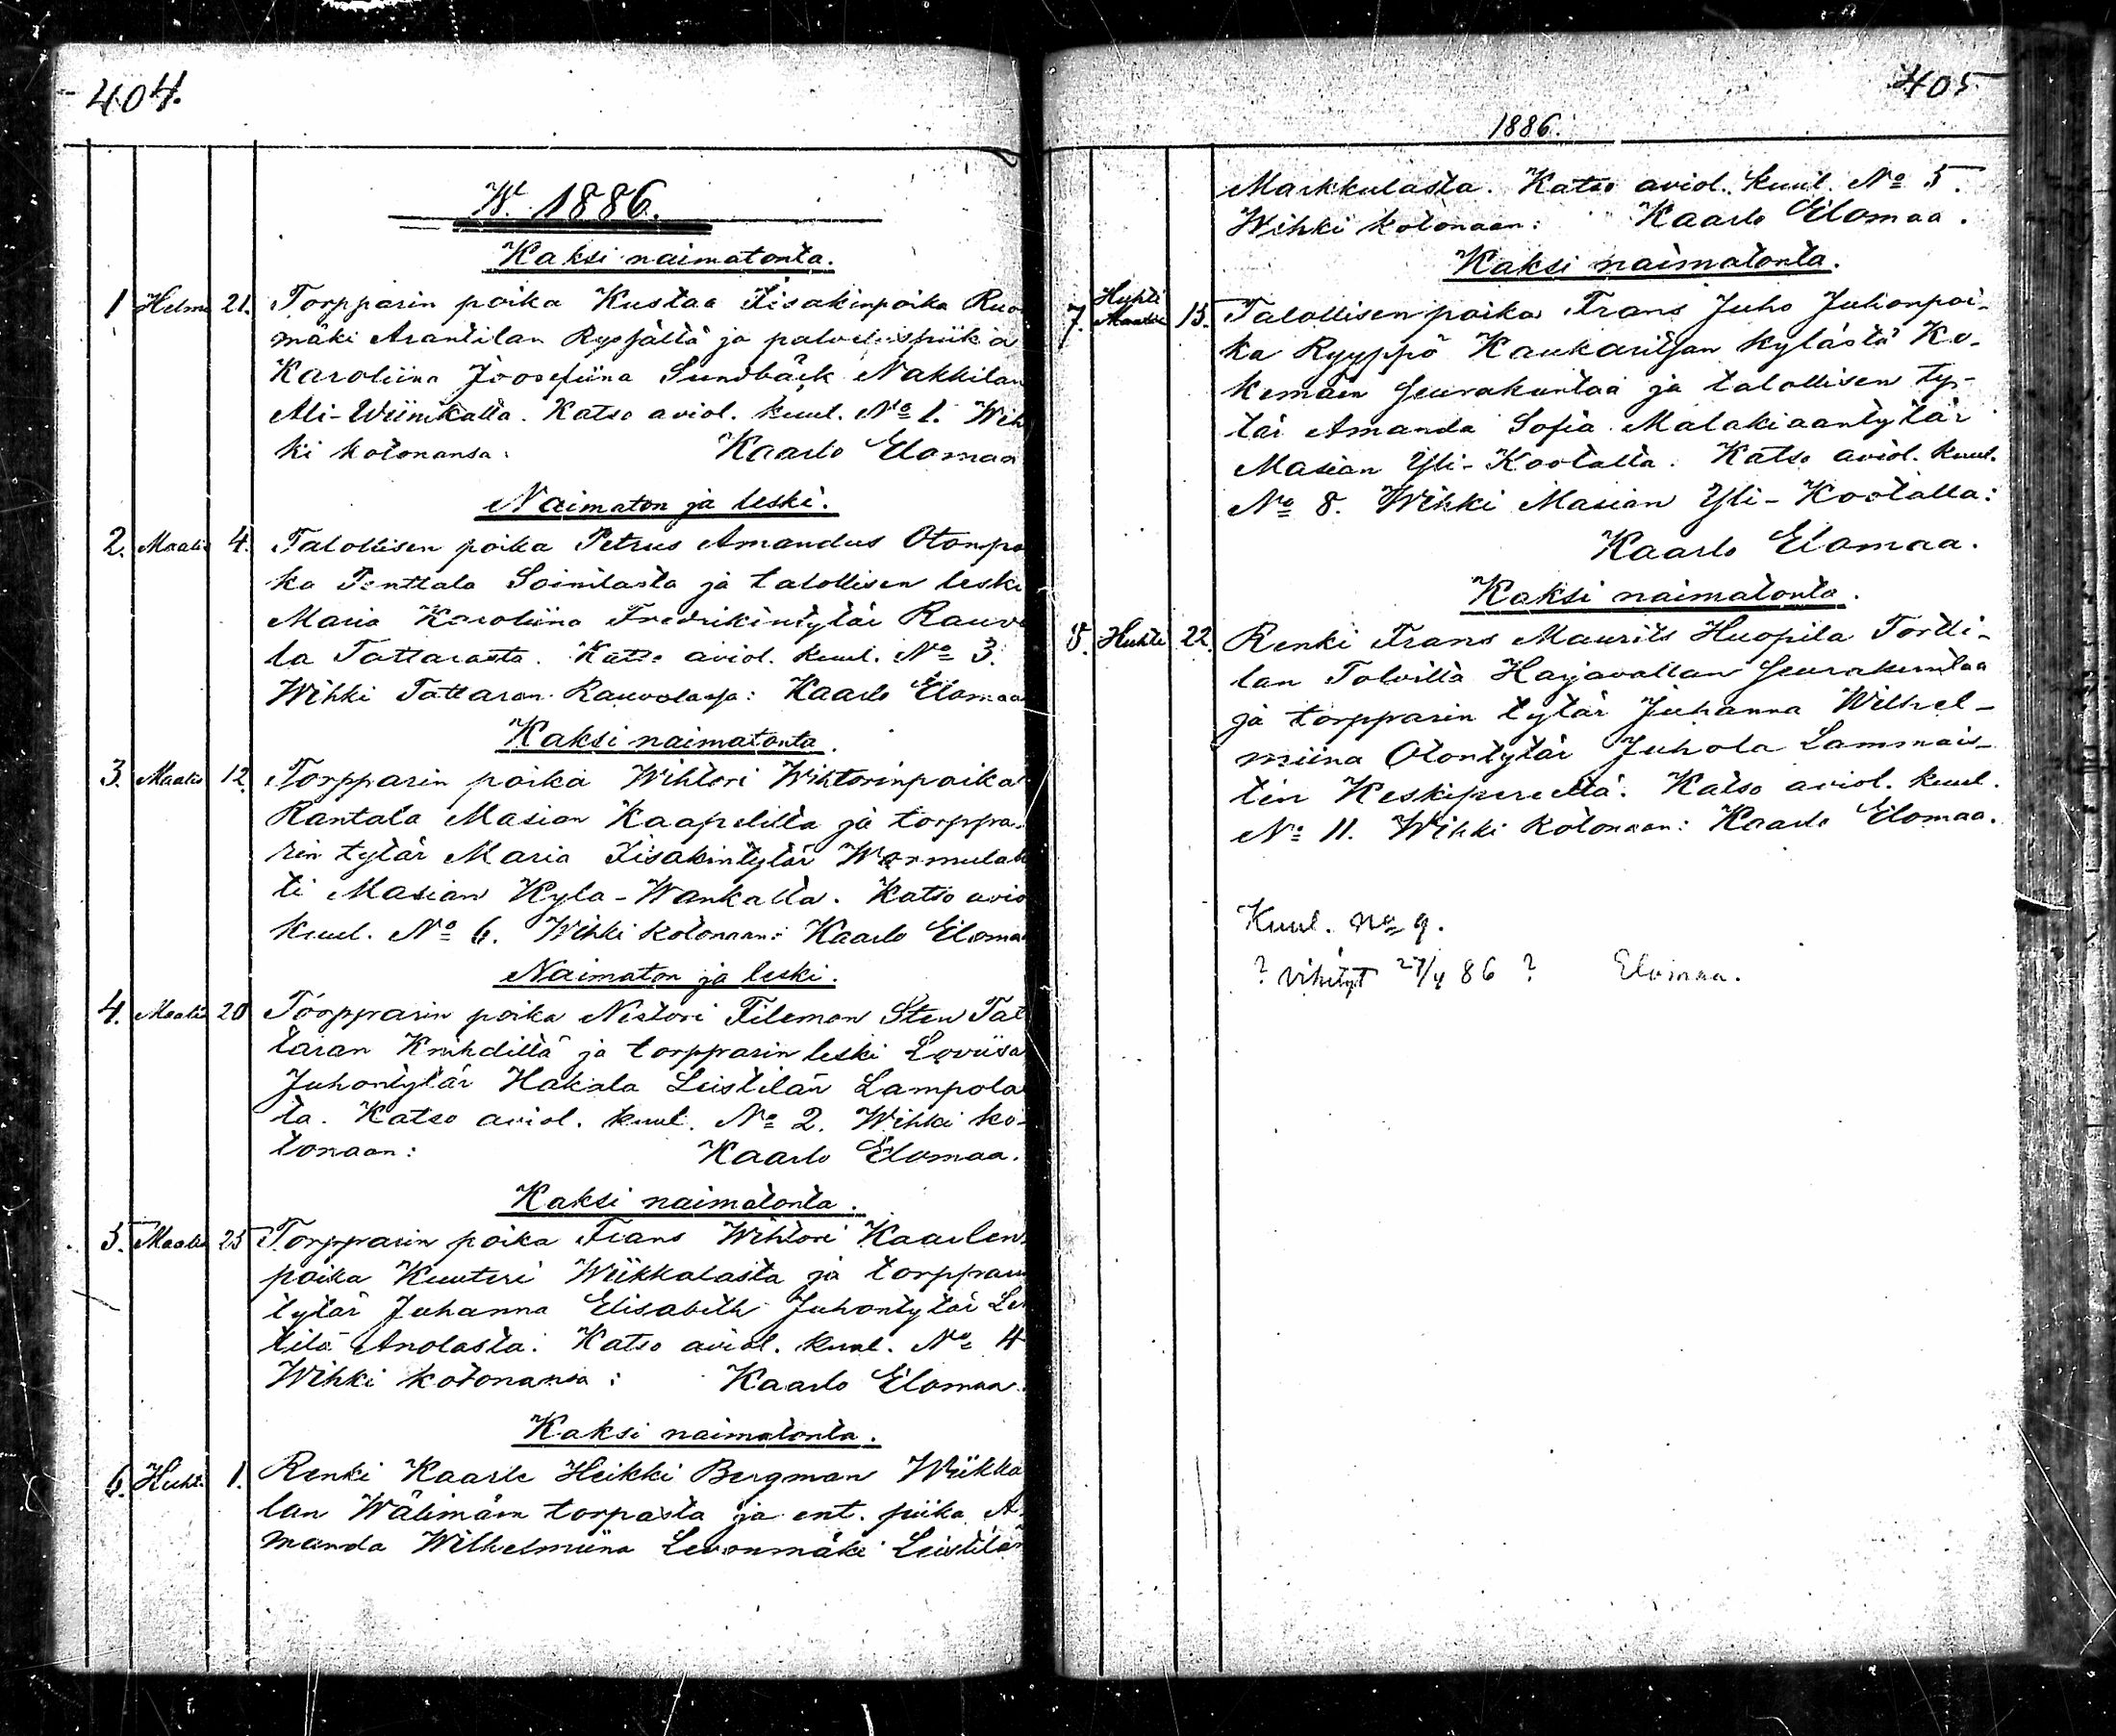 404.
W. 1886.
Kaksi naimatonta.
1 Helmi 21. Torpparin poika Kustaa Iisakinpoika Ruo
mäki Arantilan Ryssältä ja palveluspiika
Karoliina Joosefiina Sundbäck Nakkilan
Ali-Wiinikalta. Katso aviol. kuul. No 1. Wih
ki kotonansa: Kaarlo Elomaa
Naimaton ja leski.
2. Maalis 4. Talollisen poika Petrus Amandus Otonpo
ka Penttala Soinilasta ja talollisen leski
Maria Karoliina Fredrikintytär Rauvo
la Tattarasta. Katso aviol. kuul. No 3.
Wihki Tattaran Rauvolassa: Kaarlo Elomaa
Kaksi naimatonta.
3. Maalis 12. Torpparin poika Wihtori Wihtorinpoika
Rantala Masian Kaapelilta ja torppa-
rin tytär Maria Iisakintytär Warmulah
ti Masian Kyla-Wankalta. Katso avio
kuul. No 6. Wihki kotonaan: Kaarlo Eloma
Naimaton ja leski.
4. Maalis 20 Torpparin poika Nestori Fileman Sten Tat
taran Knihdiltä ja torpparin leski Loviisa
Juhontytär Hakala Leistilän Lampola
ta. Katso aviol. kuul. No 2. Wihki ko-
tonaan: Kaarlo Elomaa.
Kaksi naimatonta.
5. Maalis 25 Torpparin poika Frans Wihtori Kaarlen
poika Kuuteri Wiikkalasta ja torpparin
tytär Juhanna Elisabeth Juhontytär Lei
tilä Anolasta. Katso aviol. kuul. No 4
Wihki kotonansa: Kaarlo Elomaa.
Kaksi naimatonta.
6. Huhti. 1. Renki Kaarle Heikki Bergman Wiikka
lan Wälimäen torpasta ja ent. piika A
manda Wilhelmiina Levonmäki Leistilän
405
1886.
Markkulasta. Katso aviol. kuul. No 5.
Wihki kotonaan: Kaarlo Elomaa.
Kaksi naimatonta.
Huhti
7. Maalis 15. Talollisen poika Frans Juho Juhonpoi-
ka Ryyppö Kaukaritsan kylästä Ko-
kemäen seurakuntaa ja talollisen ty-
tär Amanda Sofia Malakiaantytär
Masian Yli-Kootalta. Katso aviol. kuul.
No 8. Wihki Masian Yli-Kootalla:
Kaarlo Elomaa.
Kaksi naimatonta.
8. Huhti 22. Renki Frans Maurits Huopila Tortti-
lan Tolvilta Harjavallan seurakuntaa
ja torpparin tytär Juhanna Wilhel-
miina Otontytär Juhola Lammais-
ten Keskipereeltä. Katso aviol. kuul.
No 11. Wihki kotonaan: Kaarlo Elomaa.
Kuul. No 9.
? vihityt 27/4 86 ? Elomaa.